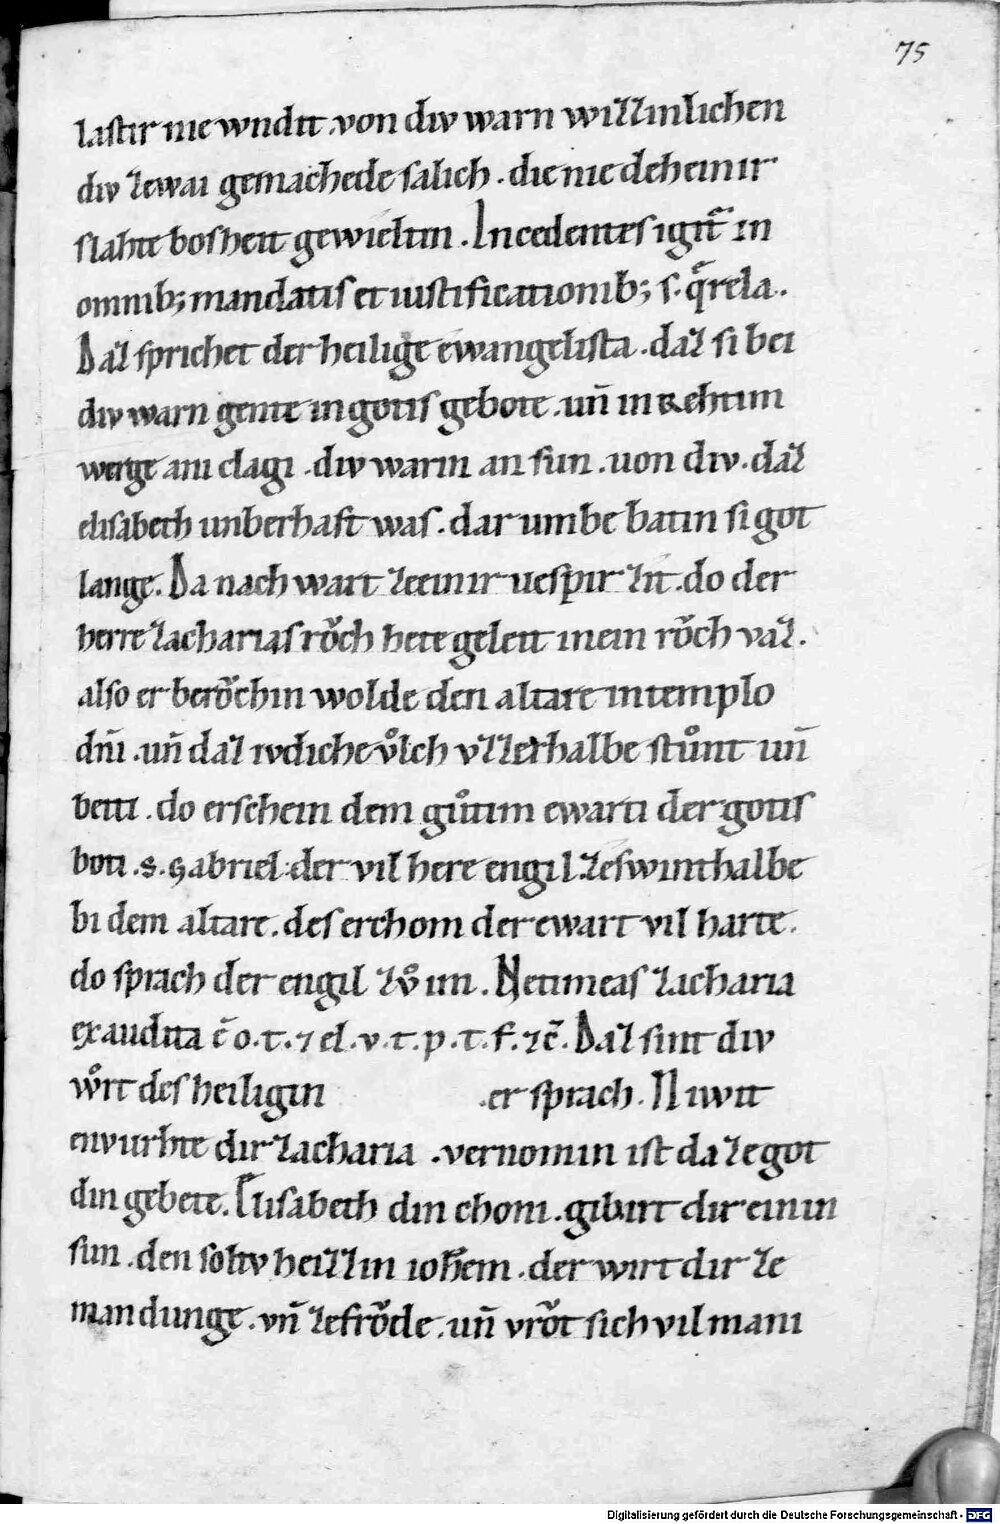 75
lastir nie wndit .von div warn willinlichen
div zewai gemachede salich . die nie deheinir
slahte bosheit gewieltin . Incedentes igit᷑ in
omnib; mandatis et iustificationib; s. q̄rela.
Daz sprichet der heilige ewangelista .daz si bei
div warn gente in gotis gebote .uñ in rehtim
werge ani clagi .div warin an sun .uon div .daz
elisabeth unberhaft was .dar umbe batin si got
lange. Da nach wart zeeinir uespir zit .do der
herre zacharias rǒch hete geleit in ein rǒch vaz.
also er berǒchin wolde den altare in templo
dñi .uñ daz ivdiche vͦlch vzzerhalbe stůnt uñ
betti .do erschein dem gůtim ewarti der gotis
boti .s. Gabriel .der vil here engil zeswinthalbe
bi dem altare .des erchom der ewart vil harte.
do sprach der engil zvͦ im . Ne timeas zacharia
exaudita ē o.t. ⁊ el.v.t.p.t.f. ⁊c̄. Daz sint div
wͦrt des heiligin .er sprach . Niwit
envurhte dir zacharia .vernomin ist daze got
din gebete. Elisabeth din choni .gibirt dir einin
sun .den soltv heizzin ioh̄em .der wirt dir ze
mandunge .vñ zefrǒde .uñ vrǒt sich vil mani
Digitalisierung gefördert durch die Deutsche Forschungsgemeinschaft - DFG